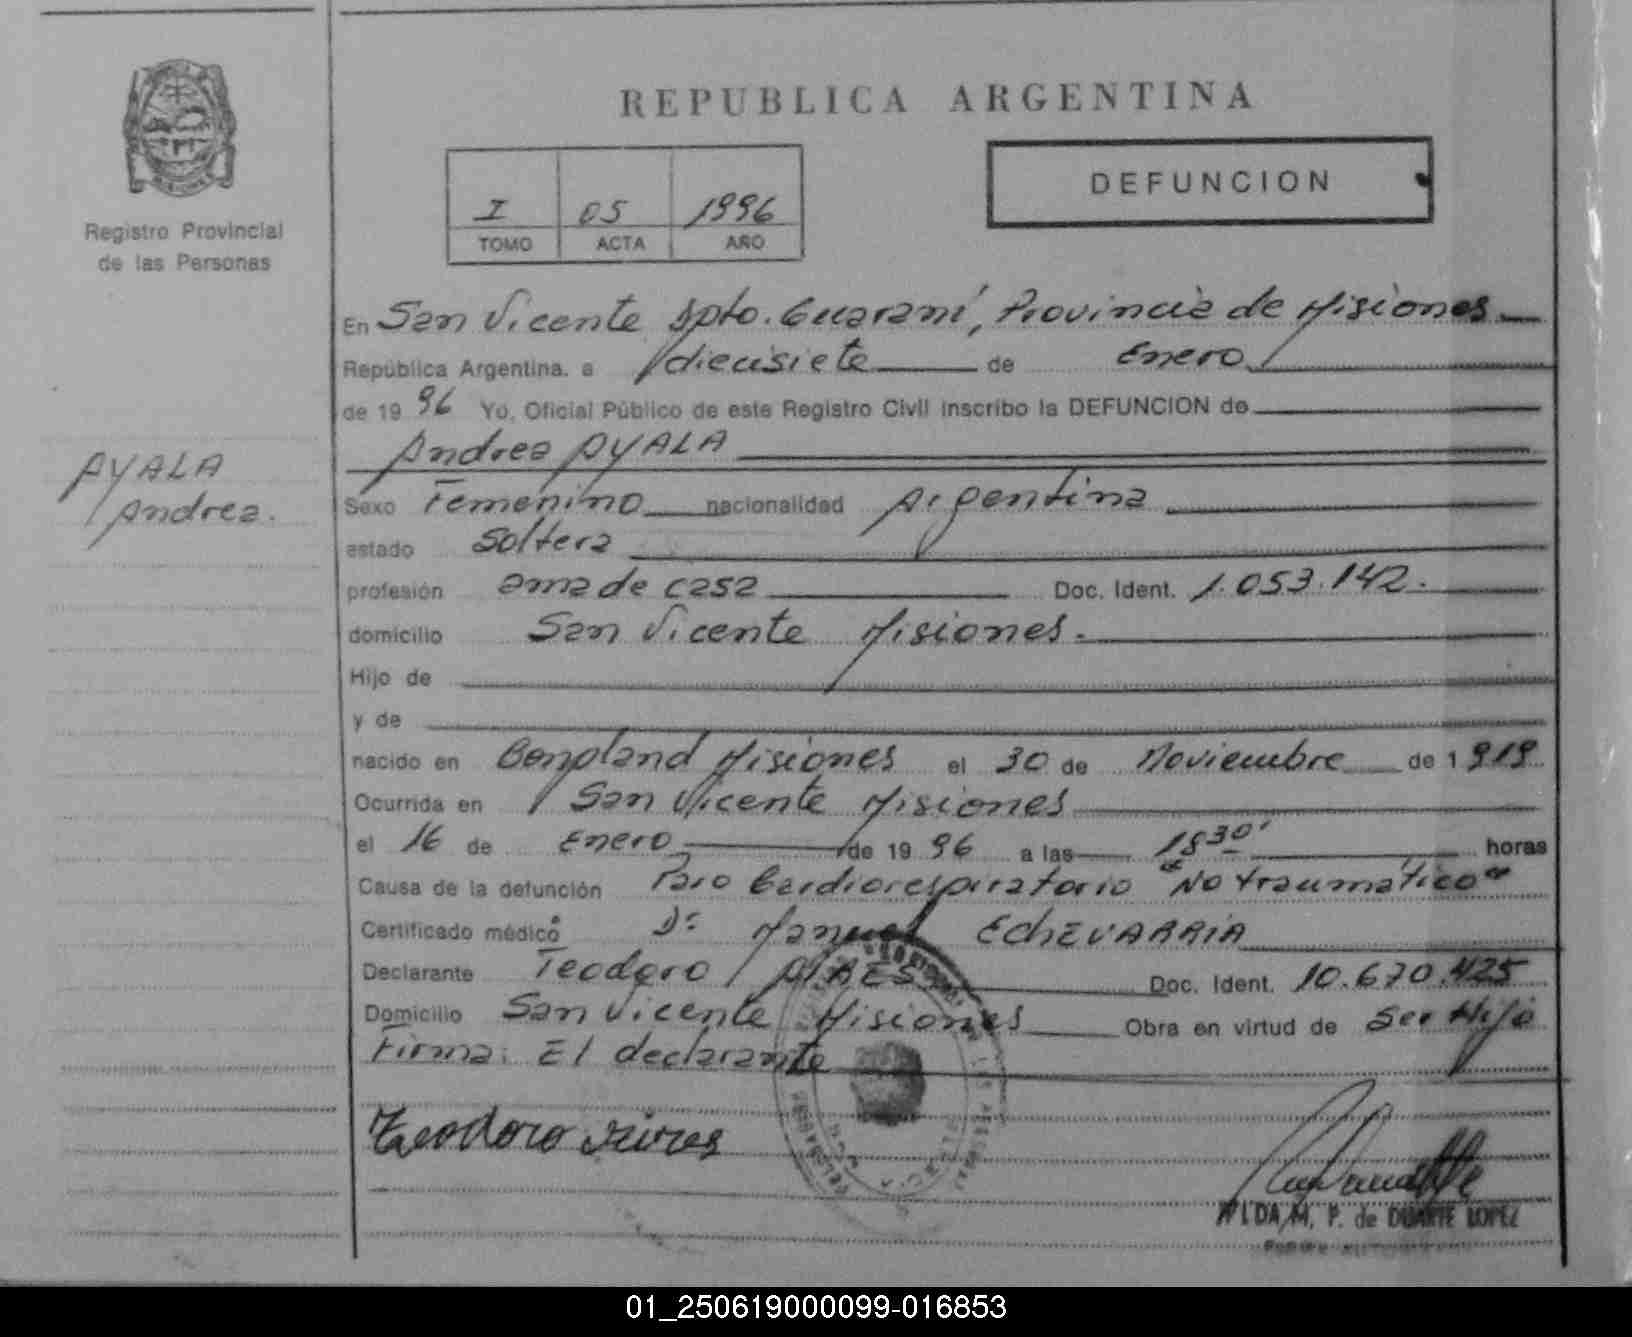 REPUBLICA ARGENTINA
DEFUNCION
I 05 1996
TOMO ACTA AÑO
Registro Provincial
de las Personas
AYALA
Andrea.
En San Vicente Dpto. Guaraní, Provincia de Misiones
República Argentina. a diecisiete de Enero
de 19 96 Yo, Oficial Público de este Registro Civil inscribo la DEFUNCION de
Andrea AYALA
Sexo Femenino nacionalidad Argentina
estado Soltera
profesión ama de casa Doc. Ident. 1.053.142.
domicilio San Vicente Misiones.
Hijo de
y de
nacido en Bonpland Misiones el 30 de Noviembre de 1919
Ocurrida en San Vicente Misiones
el 16 de Enero de 19 96 a las 18 30' horas
Causa de la defunción Paro Cardiorespiratorio "No traumático"
Certificado médico Dr. Manuel EChEVARRIA
Declarante Teodoro Doc. Ident. 10.670.425
Domicilio San Vicente Misiones Obra en virtud de Ser Hijo
Firma: El declarante
Teodoro
M, P. de DUARTE LOPEZ
01_250619000099-016853